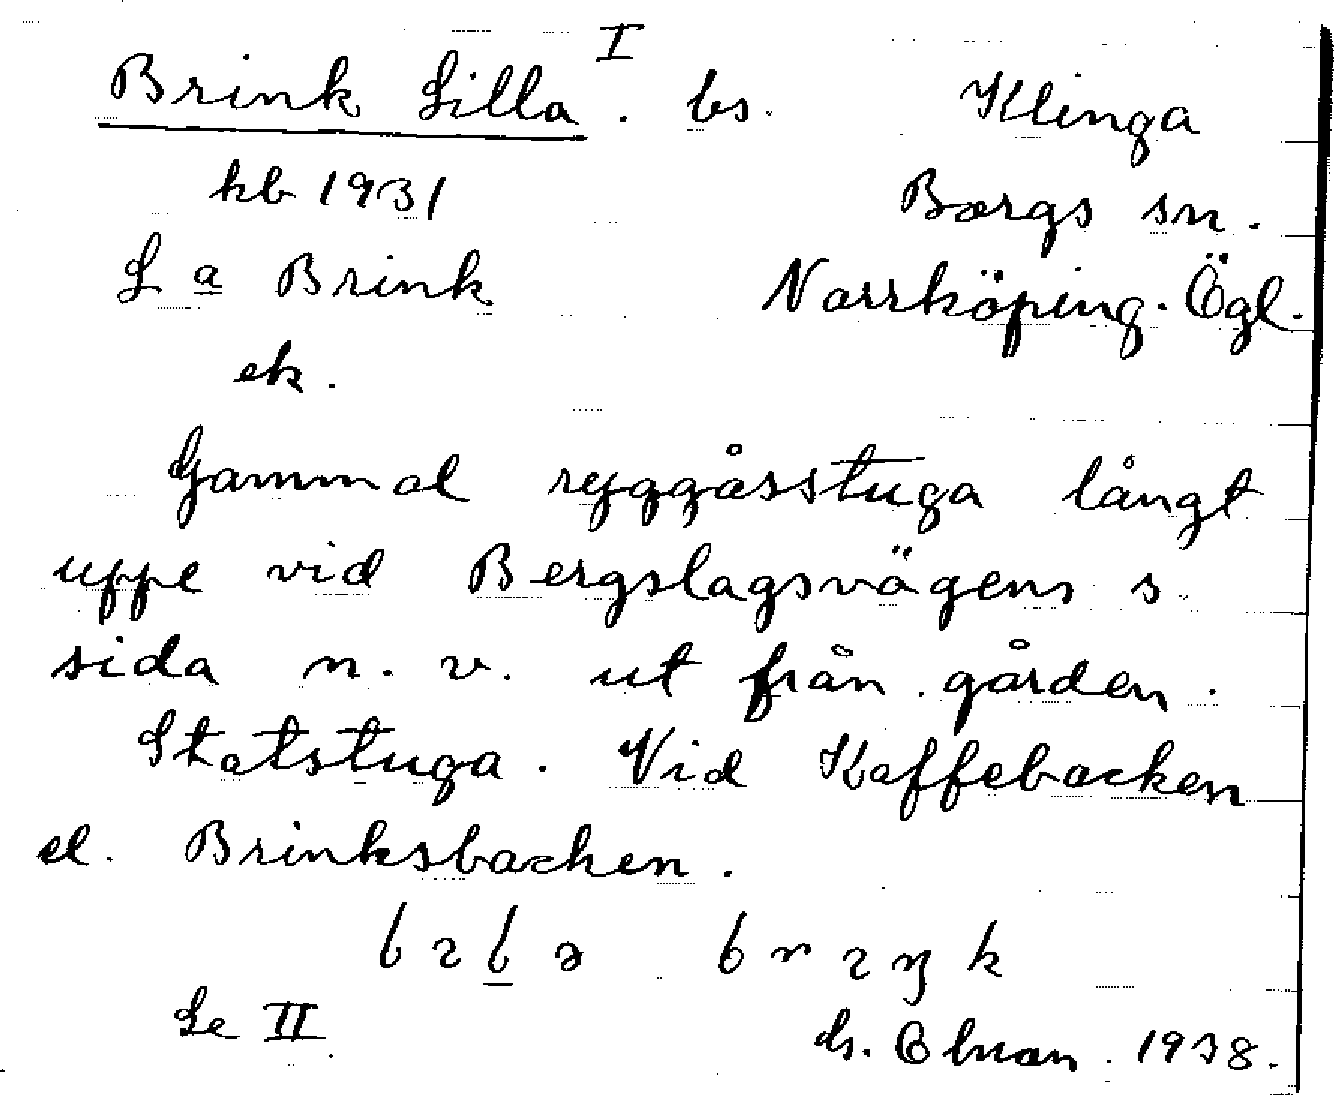 Brink Lilla I. bs. Klinga
kb 1931 Borgs sn.
La Brink Norrköping. Ögl.
ek.
Gammal ryggåsstuga långt
uppe vid Bergslagsvägens s
sida n. v. ut från gården.
Statstuga. Vid Kaffebacken
el. Brinksbacken.
Se II 1938.